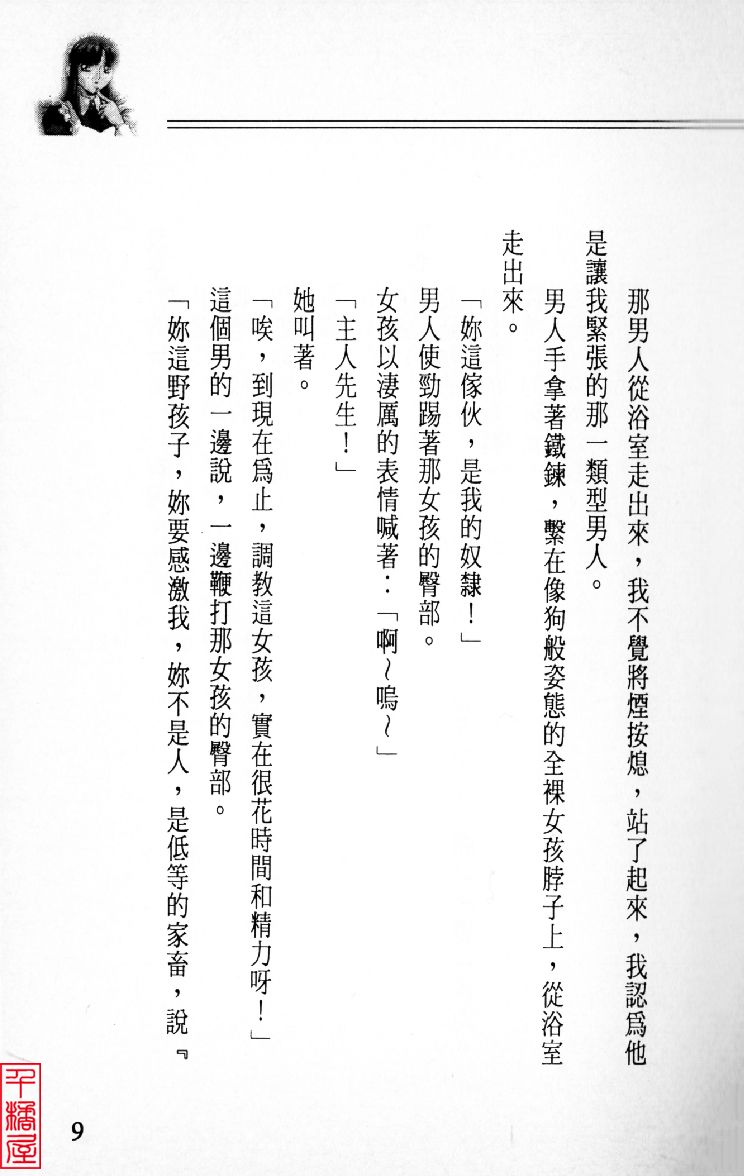 那男人從浴室走出來，我不覺將煙按熄，站了起來，我認為他
是讓我緊張的那一類型男人。
男人手拿著鐵鍊，繫在像狗般姿態的全裸女孩脖子上，從浴室
走出來。
「妳這傢伙，是我的奴隸！」
男人使勁踢著那女孩的臀部。
女孩以淒厲的表情喊著：「啊～嗚～」
「主人先生！」
她叫著。
「唉，到現在為止，調教這女孩，實在很花時間和精力呀！」
這個男的一邊說，一邊鞭打那女孩的臀部。
「妳這野孩子，妳要感激我，妳不是人，是低等的家畜，說『
9
千橘屋